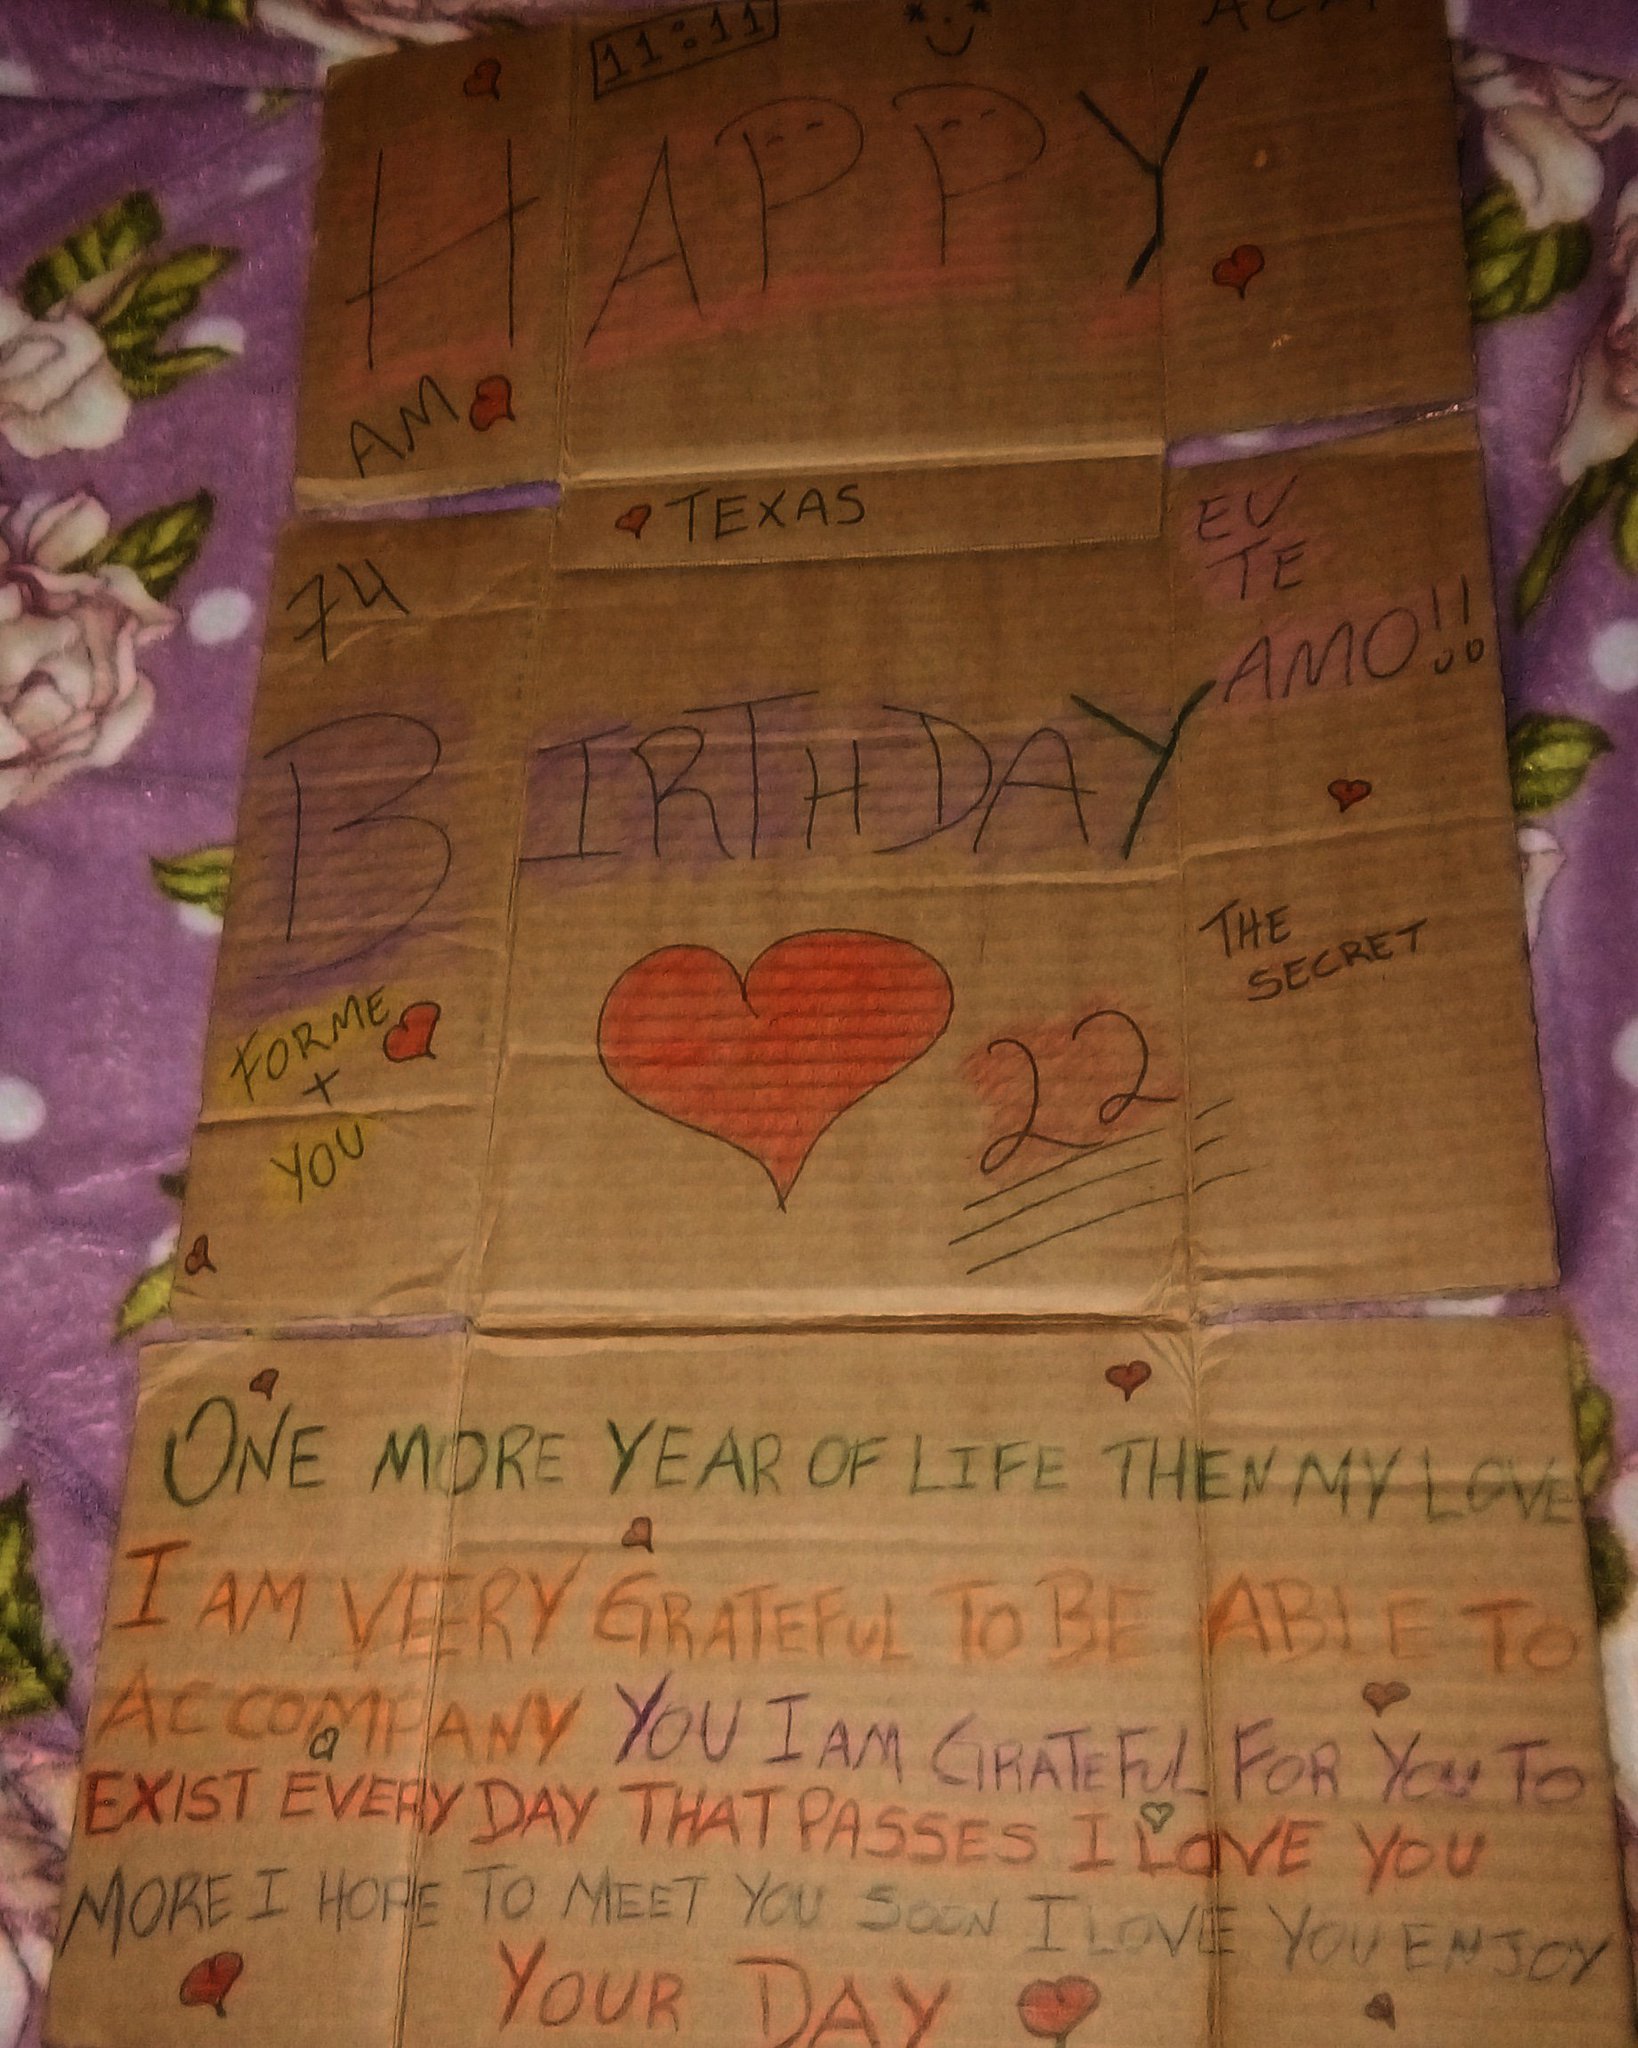 11:11
HAPPY
AM
TEXAS
74
EU
TE
AMO!!
BIRTHDAY
THE
SECRET
FOR ME
+
YOU
22
ONE MORE YEAR OF LIFE THEN MY LOVE
I AM VERY GRATEFUL TO BE ABLE TO
ACCOMPANY YOU I AM GRATEFUL FOR YOU TO
EXIST EVERY DAY THAT PASSES I LOVE YOU
MORE I HOPE TO MEET YOU SOON I LOVE YOU ENJOY
YOUR DAY